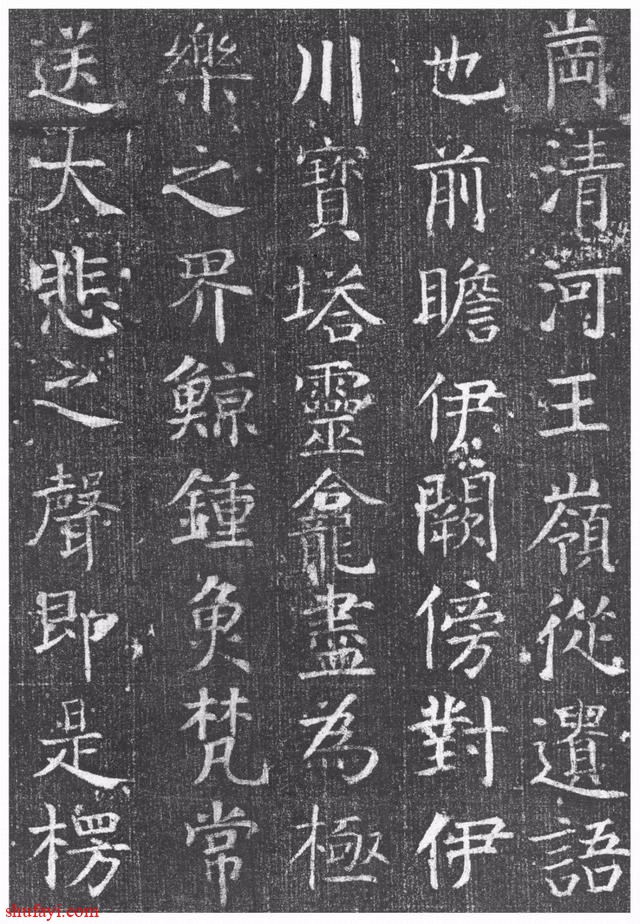 崗清河王嶺從遺語
也前瞻伊闕傍對伊
川寶塔靈龕盡為極
樂之界鯨鍾魚梵常
送大悲之聲即是楞
shufayi.com